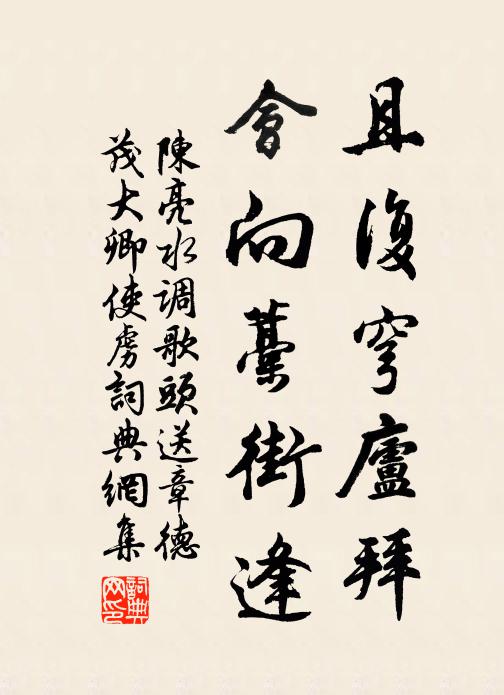 且復穹廬拜
會向藁街逢
陳亮水调歌頭送章德
茂大卿使虜詞典網集
詞典网印